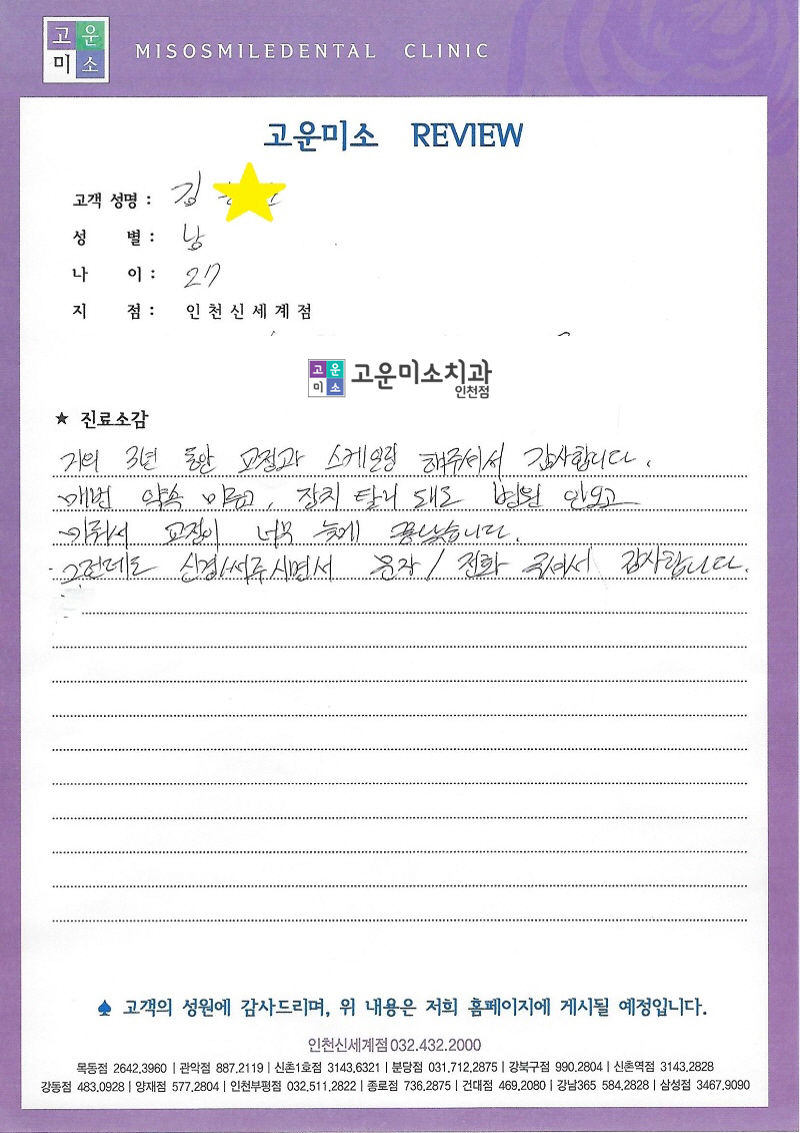 고운
미소
MISOSMILEDENTAL CLINIC
고운미소 REVIEW
고객 성명 : 김
성 별 : 남
나 이 : 27
지 점 : 인천신세계점
고운
미소
고운미소치과
인천점
★ 진료소감
거의 3년 동안 교정과 스케일링 해주셔서 감사합니다.
매번 약속 미루고, 장치 탈거 돼도 병원 안오고
미뤄서 교정이 너무 늦게 끝났습니다.
그런데도 신경써주시면서 문자 / 전화 주셔서 감사합니다.
♠ 고객의 성원에 감사드리며, 위 내용은 저희 홈페이지에 게시될 예정입니다.
인천신세계점 032.432.2000
목동점 2642,3960 | 관악점 887.2119 | 신촌1호점 3143,6321 | 분당점 031.712,2875 | 강북구점 990.2804 | 신촌역점 3143.2828
강동점 483.0928 | 양재점 577.2804 | 인천부평점 032.511.2822 | 종로점 736.2875 | 건대점 469.2080 | 강남365 584.2828 | 삼성점 3467.9090